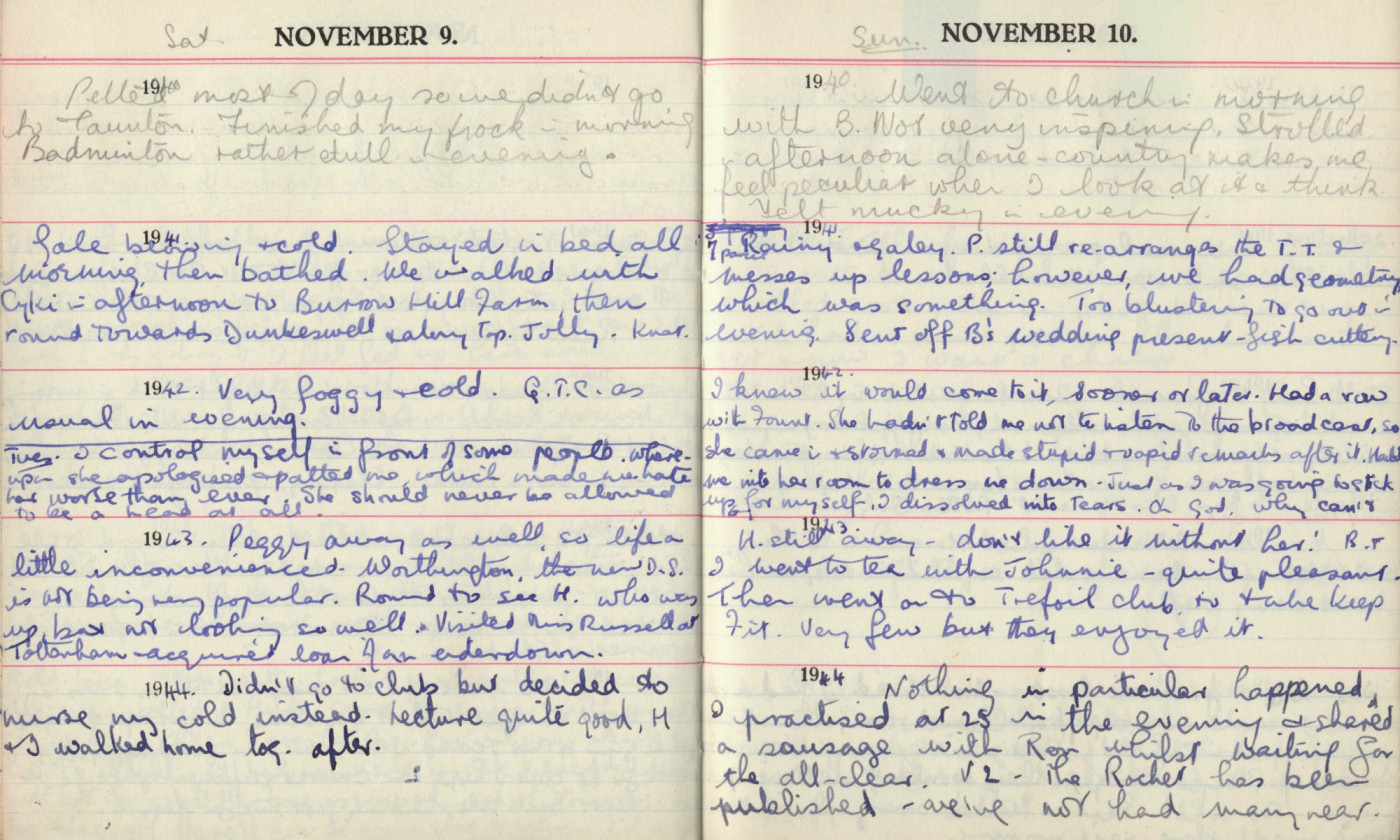 Sat. NOVEMBER 9.
1940
Pelted most of day so we didn't go
to Taunton. Finished my frock in morning
Badminton rather dull in evening.
1941.
Gale blowing & cold. Stayed in bed all
morning, then bathed. We walked with
Cyki in afternoon to Burrow Hill Farm then
round towards Dunkeswell & along top. Jolly. Knat.
1942. Very foggy & cold. G.T.C. as
usual in evening.
Tues. I control myself in front of some people, where-
upon she apologised & patted me which made me hate
her worse than ever. She should never be allowed
to be a head at all.
1943. Peggy away as well, so life a
little inconvenienced. Worthington, the new D.S.
is not being very popular. Round to see H. who was
up, but not looking so well. Visited Miss Russell at
Tottenham & acquired loan of an eiderdown.
1944. Didn't go to club but decided to
nurse my cold instead. Lecture quite good, H
& I walked home tog. after.
Sun. NOVEMBER 10.
1940. Went to church in morning
with B. Not very inspiring. Strolled
in afternoon alone - country makes me
feel peculiar when I look at it & think
Felt mucky in evening.
1941.
Rainy & galey. P. still re-arranges the T.T. &
messes up lessons; however, we had geometry
which was something. Too blustering to go out in
evening. Sent off B's wedding present - fish cutlery.
1942.
I knew it would come to it, sooner or later. Had a row
with Fount. She hadn't told me not to listen to the broadcast, so
she came in & stormed & made stupid & vapid remarks after it.
me into her room to dress me down. Just as I was going to stick
up for myself, I dissolved into tears. Oh God, why can't
1943.
H. still away - don't like it without her! B. &
I went to tea with Johnnie - quite pleasant.
Then went on to Trefoil club, to take Keep
Fit. Very few but they enjoyed it.
1944 Nothing in particular happened,
I practised at 23 in the evening & shared
a sausage with Ron whilst waiting for
the all-clear. V2 - The Rocket has been
published - we've not had many near.